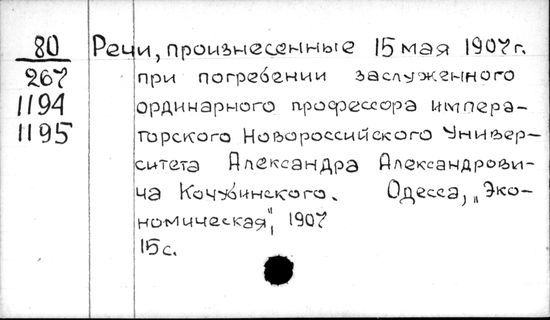 80 Речи, произнесенные 15 мая 1907 г.
267 при погребении заслуженного
1194 ординарного профессора импера-
1195 торского Новороссийского Универ-
ситета Александра Александрови-
ча Кочубинского. Одесса, „Эко-
номическая", 1907
15 с.